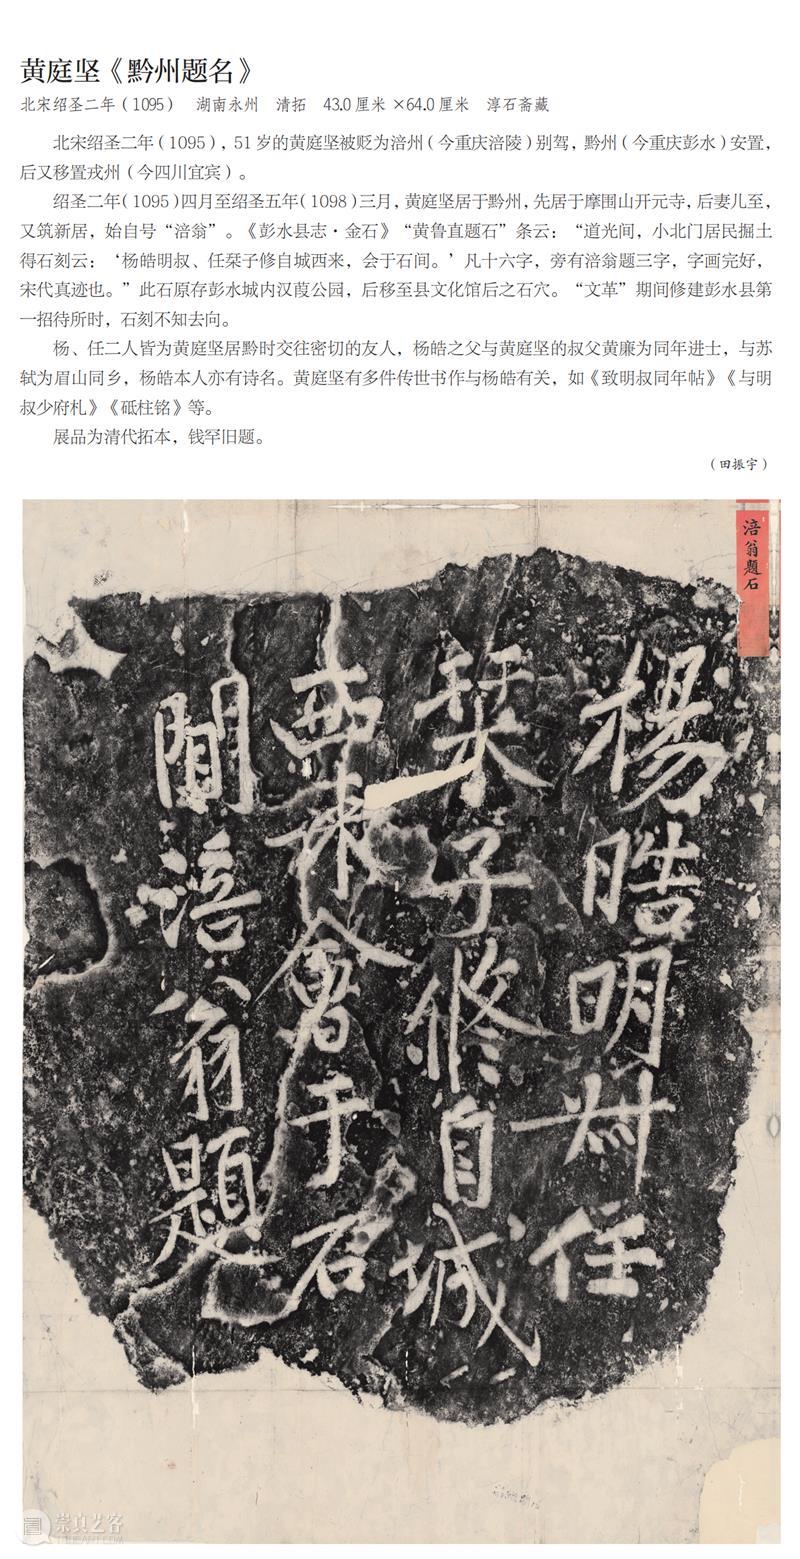 黄庭坚《黔州题名》
北宋绍圣二年（1095） 湖南永州 清拓 43.0 厘米 ×64.0 厘米 淳石斋藏
北宋绍圣二年（1095），51 岁的黄庭坚被贬为涪州（今重庆涪陵）别驾，黔州（今重庆彭水）安置，
后又移置戎州（今四川宜宾）。
绍圣二年（1095）四月至绍圣五年（1098）三月，黄庭坚居于黔州，先居于摩围山开元寺，后妻儿至，
又筑新居，始自号“涪翁”。《彭水县志·金石》“黄鲁直题石”条云：“道光间，小北门居民掘土
得石刻云：‘杨皓明叔、任棻子修自城西来，会于石间。’凡十六字，旁有涪翁题三字，字画完好，
宋代真迹也。”此石原存彭水城内汉葭公园，后移至县文化馆后之石穴。“文革”期间修建彭水县第
一招待所时，石刻不知去向。
杨、任二人皆为黄庭坚居黔时交往密切的友人，杨皓之父与黄庭坚的叔父黄廉为同年进士，与苏
轼为眉山同乡，杨皓本人亦有诗名。黄庭坚有多件传世书作与杨皓有关，如《致明叔同年帖》《与明
叔少府札》《砥柱铭》等。
展品为清代拓本，钱罕旧题。
（田振宇）
涪翁题石
楊皓明叔任
棻子修自城
西来會于石
間涪翁題
崇真艺客